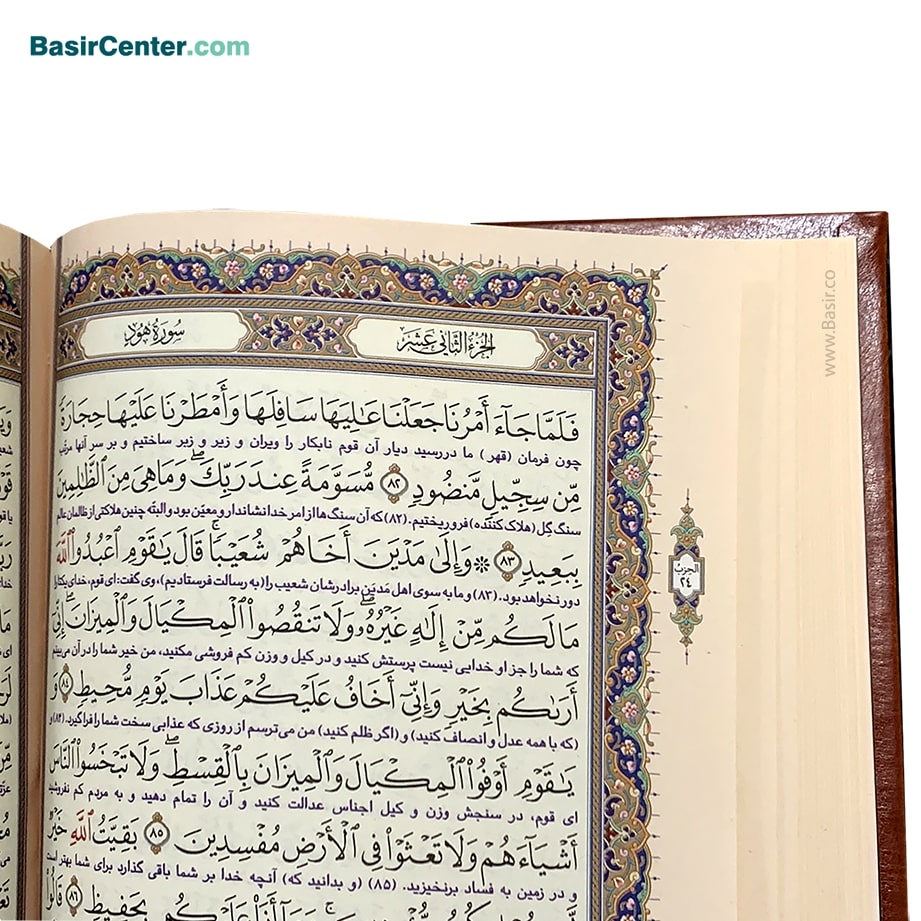 BasirCenter.com
www.Basir.co
سورة هود
الجزء الثاني عشر
فَلَمَّا جَآءَ أَمْرُنَا جَعَلْنَا عَالِيَهَا سَافِلَهَا وَأَمْطَرْنَا عَلَيْهَا حِجَارَةً
چون فرمان (قهر) ما دررسید دیار آن قوم نابکار را ویران و زیر و زبر ساختیم و بر سر آنها مرتب
مِّن سِجِّيلٍ مَّنضُودٍ ۝٨٢ مُّسَوَّمَةً عِندَ رَبِّكَ ۖ وَمَا هِيَ مِنَ الظَّالِمِينَ
سنگ گِل (هلاک کننده) فرو ریختیم. (۸۲) که آن سنگ ها از امر خدا نشاندار و معیّن بود و البتّه چنین هلاکتی از ظالمان عالم
بِبَعِيدٍ ۝٨٣ ۞ وَإِلَىٰ مَدْيَنَ أَخَاهُمْ شُعَيْبًا ۚ قَالَ يَاقَوْمِ اعْبُدُوا اللَّهَ
دور نخواهد بود. (۸۳) و ما به سوی اهل مَدیَن برادرشان شعیب را (به رسالت فرستادیم)، وی گفت: ای قوم، خدای یکتا را
الحزب ٢٤
مَا لَكُم مِّنْ إِلَٰهٍ غَيْرُهُ ۖ وَلَا تَنقُصُوا الْمِكْيَالَ وَالْمِيزَانَ ۚ إِنِّي
که شما را جز او خدایی نیست پرستش کنید و در کیل و وزن کم فروشی مکنید، من خیر شما را در آن می‌بینم
أَرَىٰكُم بِخَيْرٍ وَإِنِّي أَخَافُ عَلَيْكُمْ عَذَابَ يَوْمٍ مُّحِيطٍ ۝٨٤ وَ
(که با همه عدل و انصاف کنید) و (اگر ظلم کنید) من می‌ترسم از روزی که عذابی سخت شما را فرا گیرد. (۸۴) و
يَاقَوْمِ أَوْفُوا الْمِكْيَالَ وَالْمِيزَانَ بِالْقِسْطِ ۖ وَلَا تَبْخَسُوا النَّاسَ
ای قوم، در سنجش وزن و کیل اجناس عدالت کنید و آن را تمام دهید و به مردم کم نفروشید
أَشْيَآءَهُمْ وَلَا تَعْثَوْا فِي الْأَرْضِ مُفْسِدِينَ ۝٨٥ بَقِيَّتُ اللَّهِ خَيْرٌ
و در زمین به فساد برنخیزید. (۸۵) (و بدانید که) آنچه خدا بر شما باقی گذارد برای شما بهتر است
عَلَيْكُم بِحَفِيظٍ ۝٨٦ قَالُوا